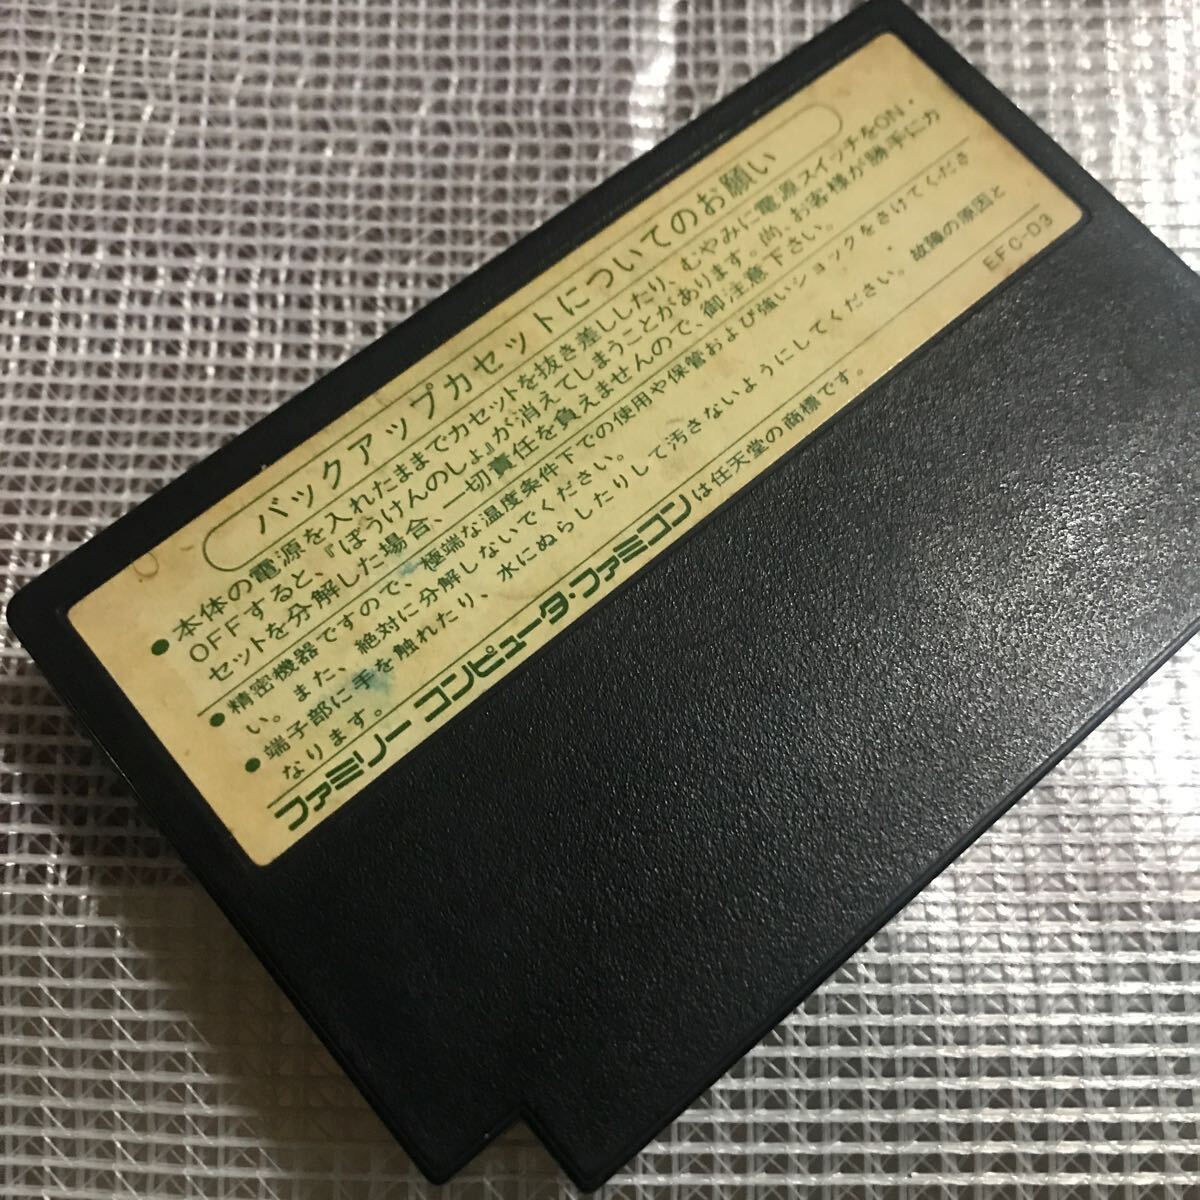 バックアップカセットについてのお願い
●本体の電源を入れたままでカセットを抜き差ししたり、むやみに電源スイッチをON・
OFFすると、『ぼうけんのしょ』が消えてしまうことがあります。尚、お客様が勝手にカ
セットを分解した場合、一切責任を負えませんので、御注意下さい。
●精密機器ですので、極端な温度条件下での使用や保管および強いショックをさけてくださ
い。また、絶対に分解しないでください。
●端子部に手を触れたり、水にぬらしたりして汚さないようにしてください。故障の原因と
なります。
EFC-D3
ファミリーコンピュータ・ファミコンは任天堂の商標です。